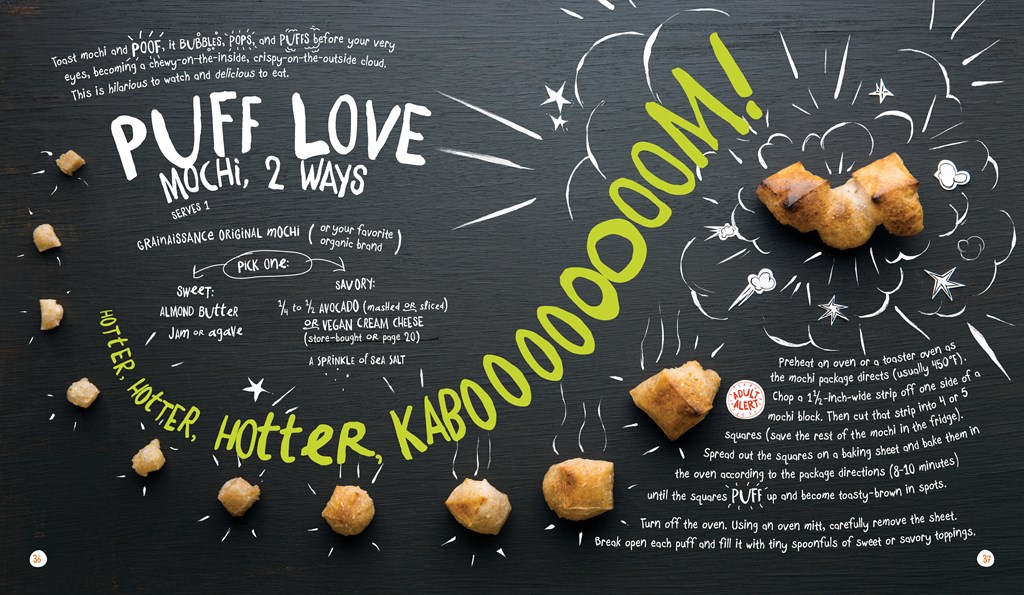 Toast mochi and POOF, it BUBBLES, POPS, and PUFFS before your very
eyes, becoming a chewy-on-the-inside, crispy-on-the-outside cloud.
This is hilarious to watch and delicious to eat.
PUFF LOVE
MOCHi, 2 WAYS
SERVES 1
GRAiNAiSSANCE ORiGiNAL MOCHi (or your favorite
organic brand)
PiCK ONE:
SWEET:
ALMOND BUTTER
JAM OR agave
SAVORY:
1/4 to 1/2 AVOCADO (mashed OR sliced)
OR VEGAN CREAM CHEESE
(store-bought OR page 20)
A SPRiNKLE of SEA SALT
HOTTER, HOTTER, HOTTER, KABOOOOOOOOOOM!
Preheat an oven or a toaster oven as
the mochi package directs (usually 450°F).
ADULT
ALERT
Chop a 1 1/2-inch-wide strip off one side of a
mochi block. Then cut that strip into 4 or 5
squares (save the rest of the mochi in the fridge).
Spread out the squares on a baking sheet and bake them in
the oven according to the package directions (8-10 minutes)
until the squares PUFF up and become toasty-brown in spots.
Turn off the oven. Using an oven mitt, carefully remove the sheet.
Break open each puff and fill it with tiny spoonfuls of sweet or savory toppings.
36
37